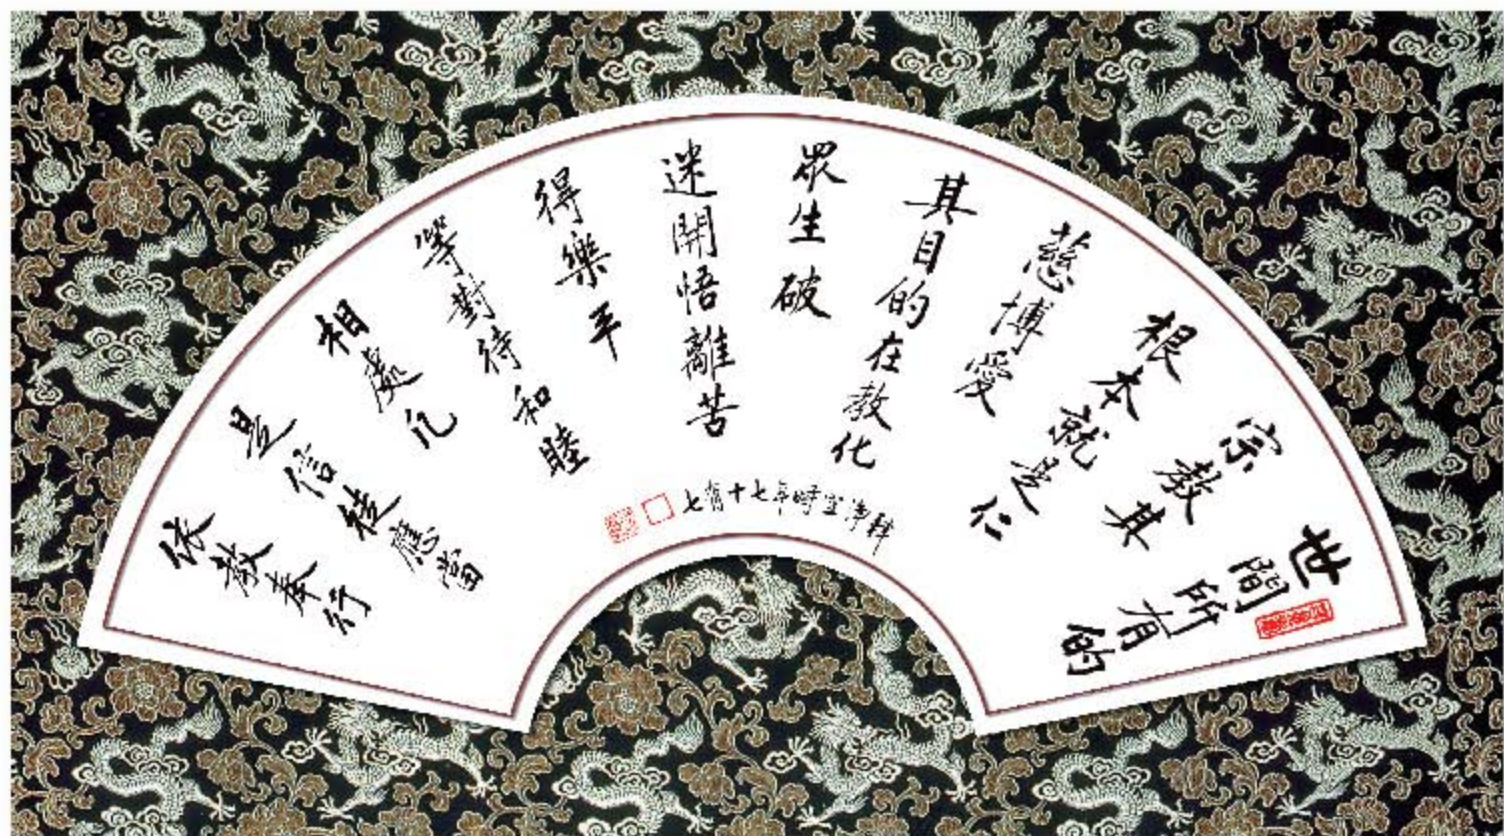 世間所有的
宗教其
根本就是仁
慈博愛
其目的在教化
眾生破
迷開悟離苦
得樂平
等對待和睦
相處凡
是信徒應當
依教奉行
釋淨空時年七十有七